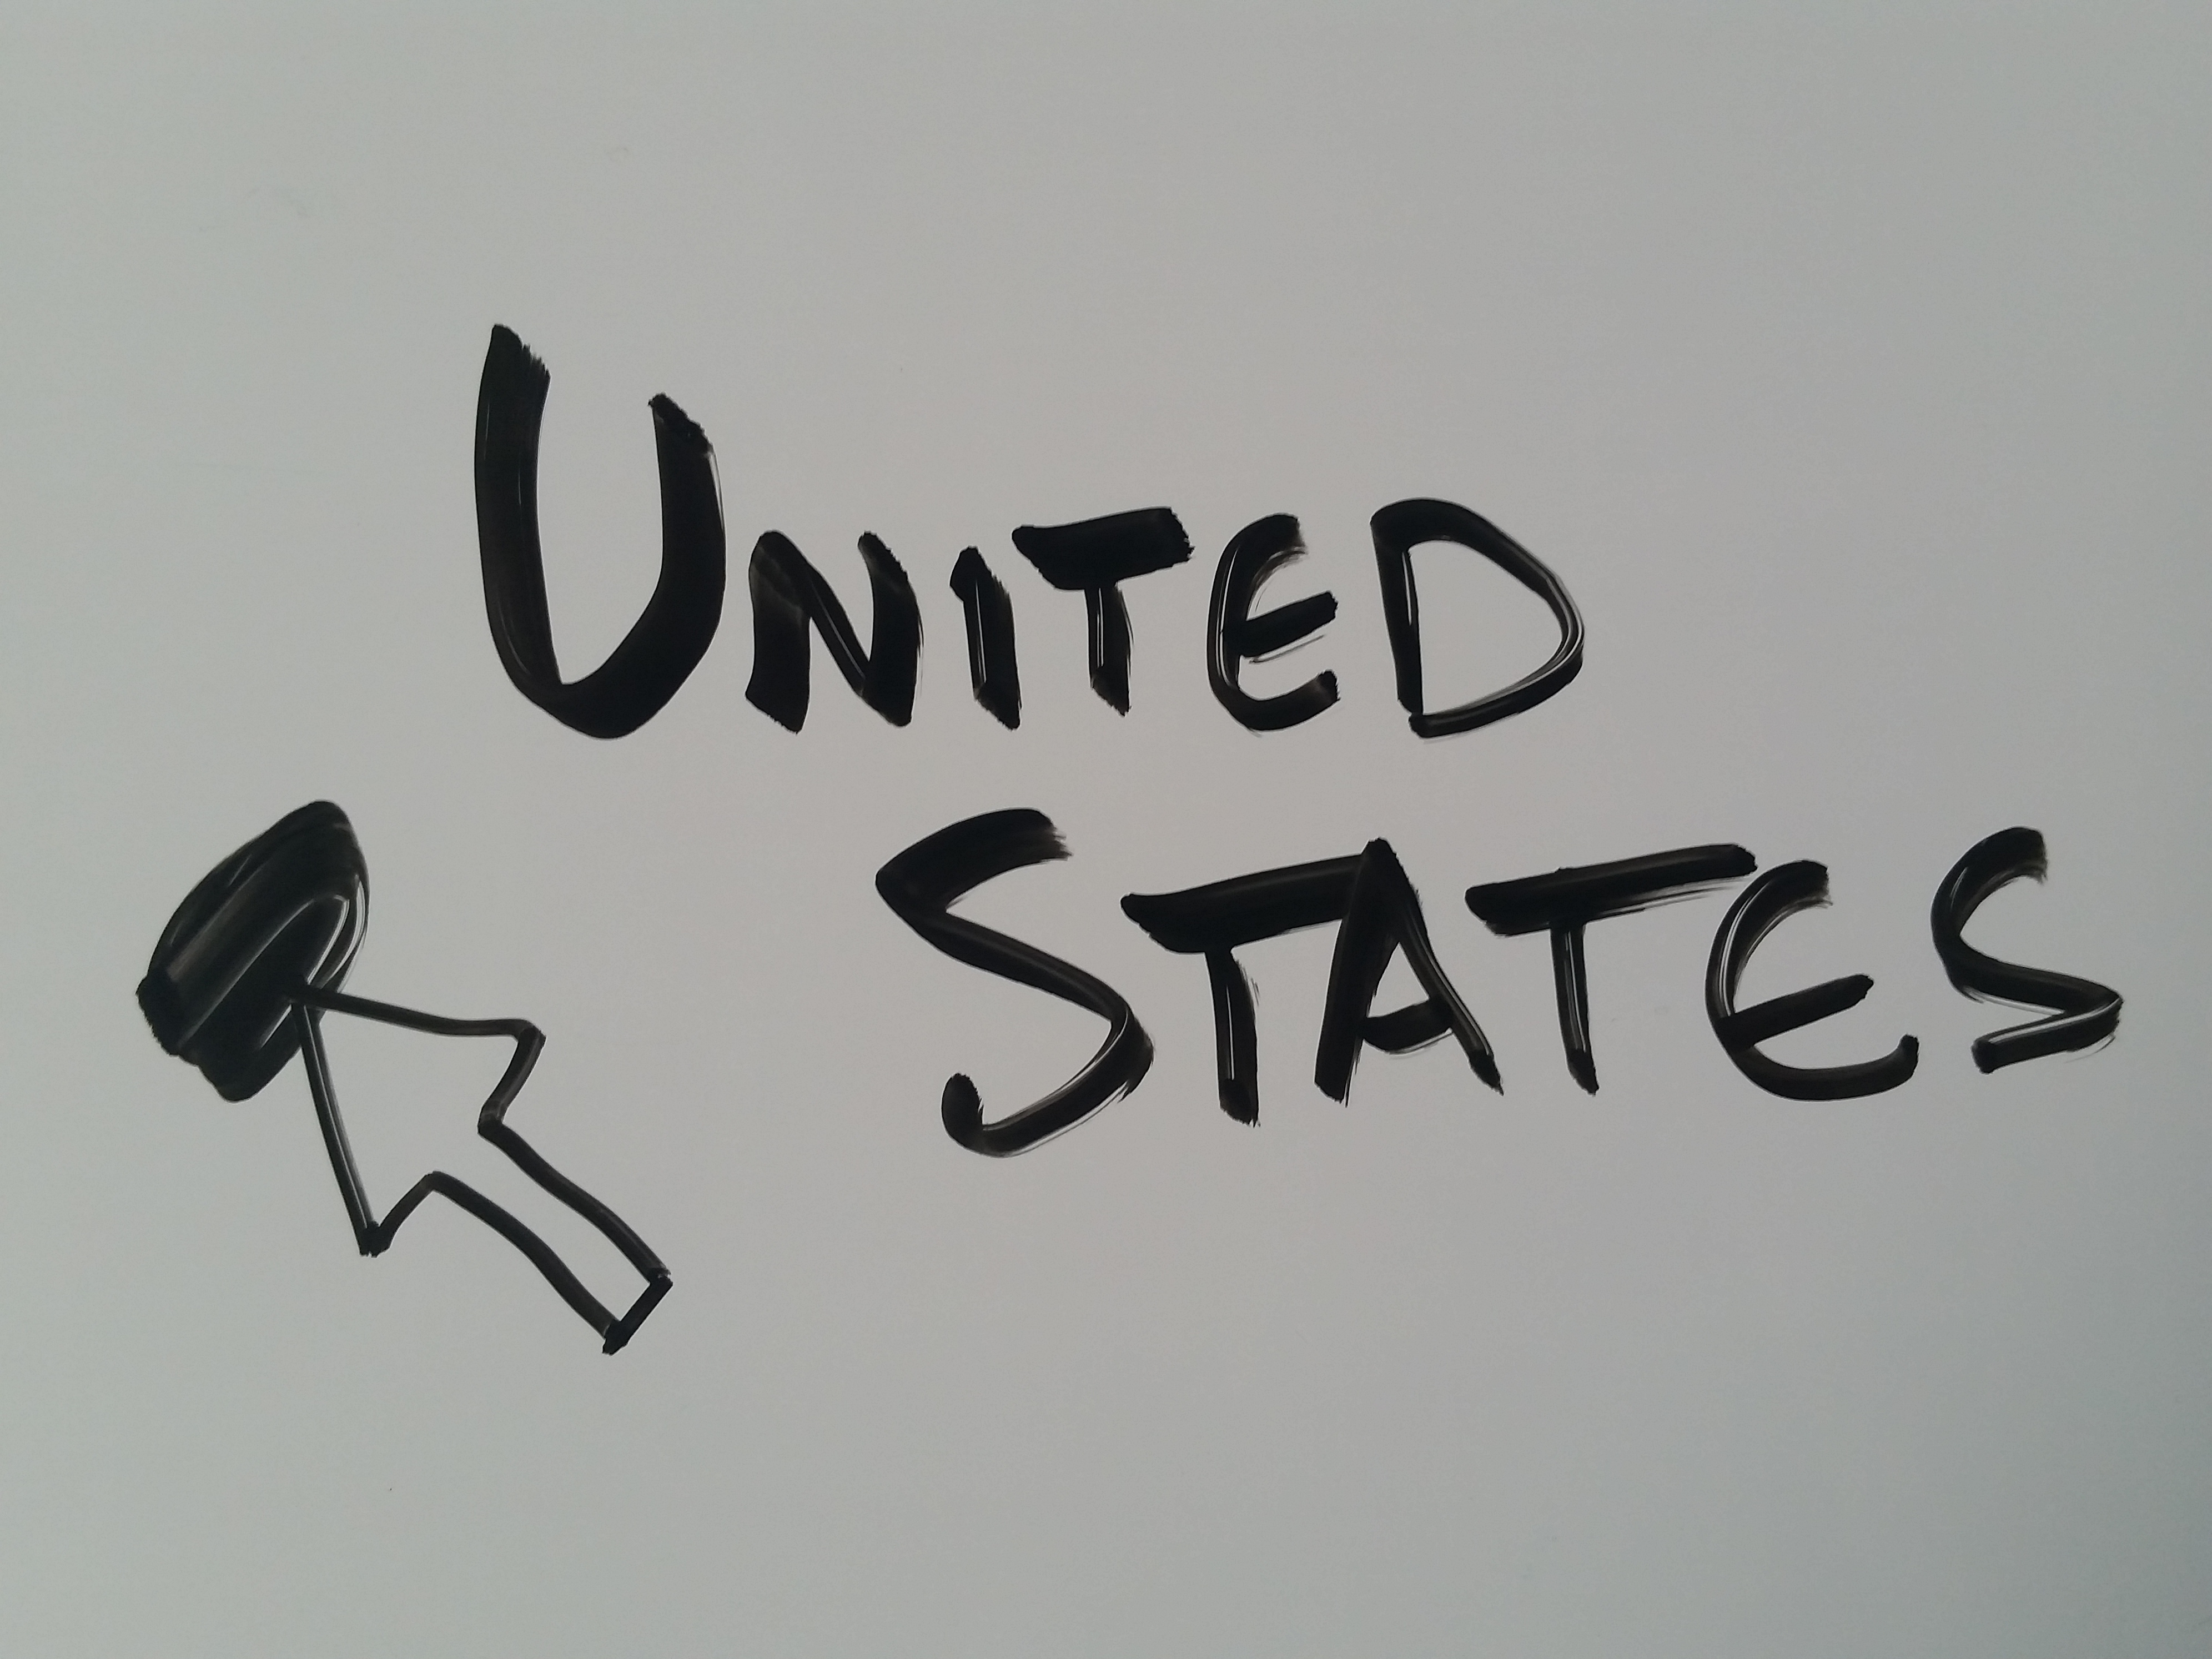 UNITED
STATES